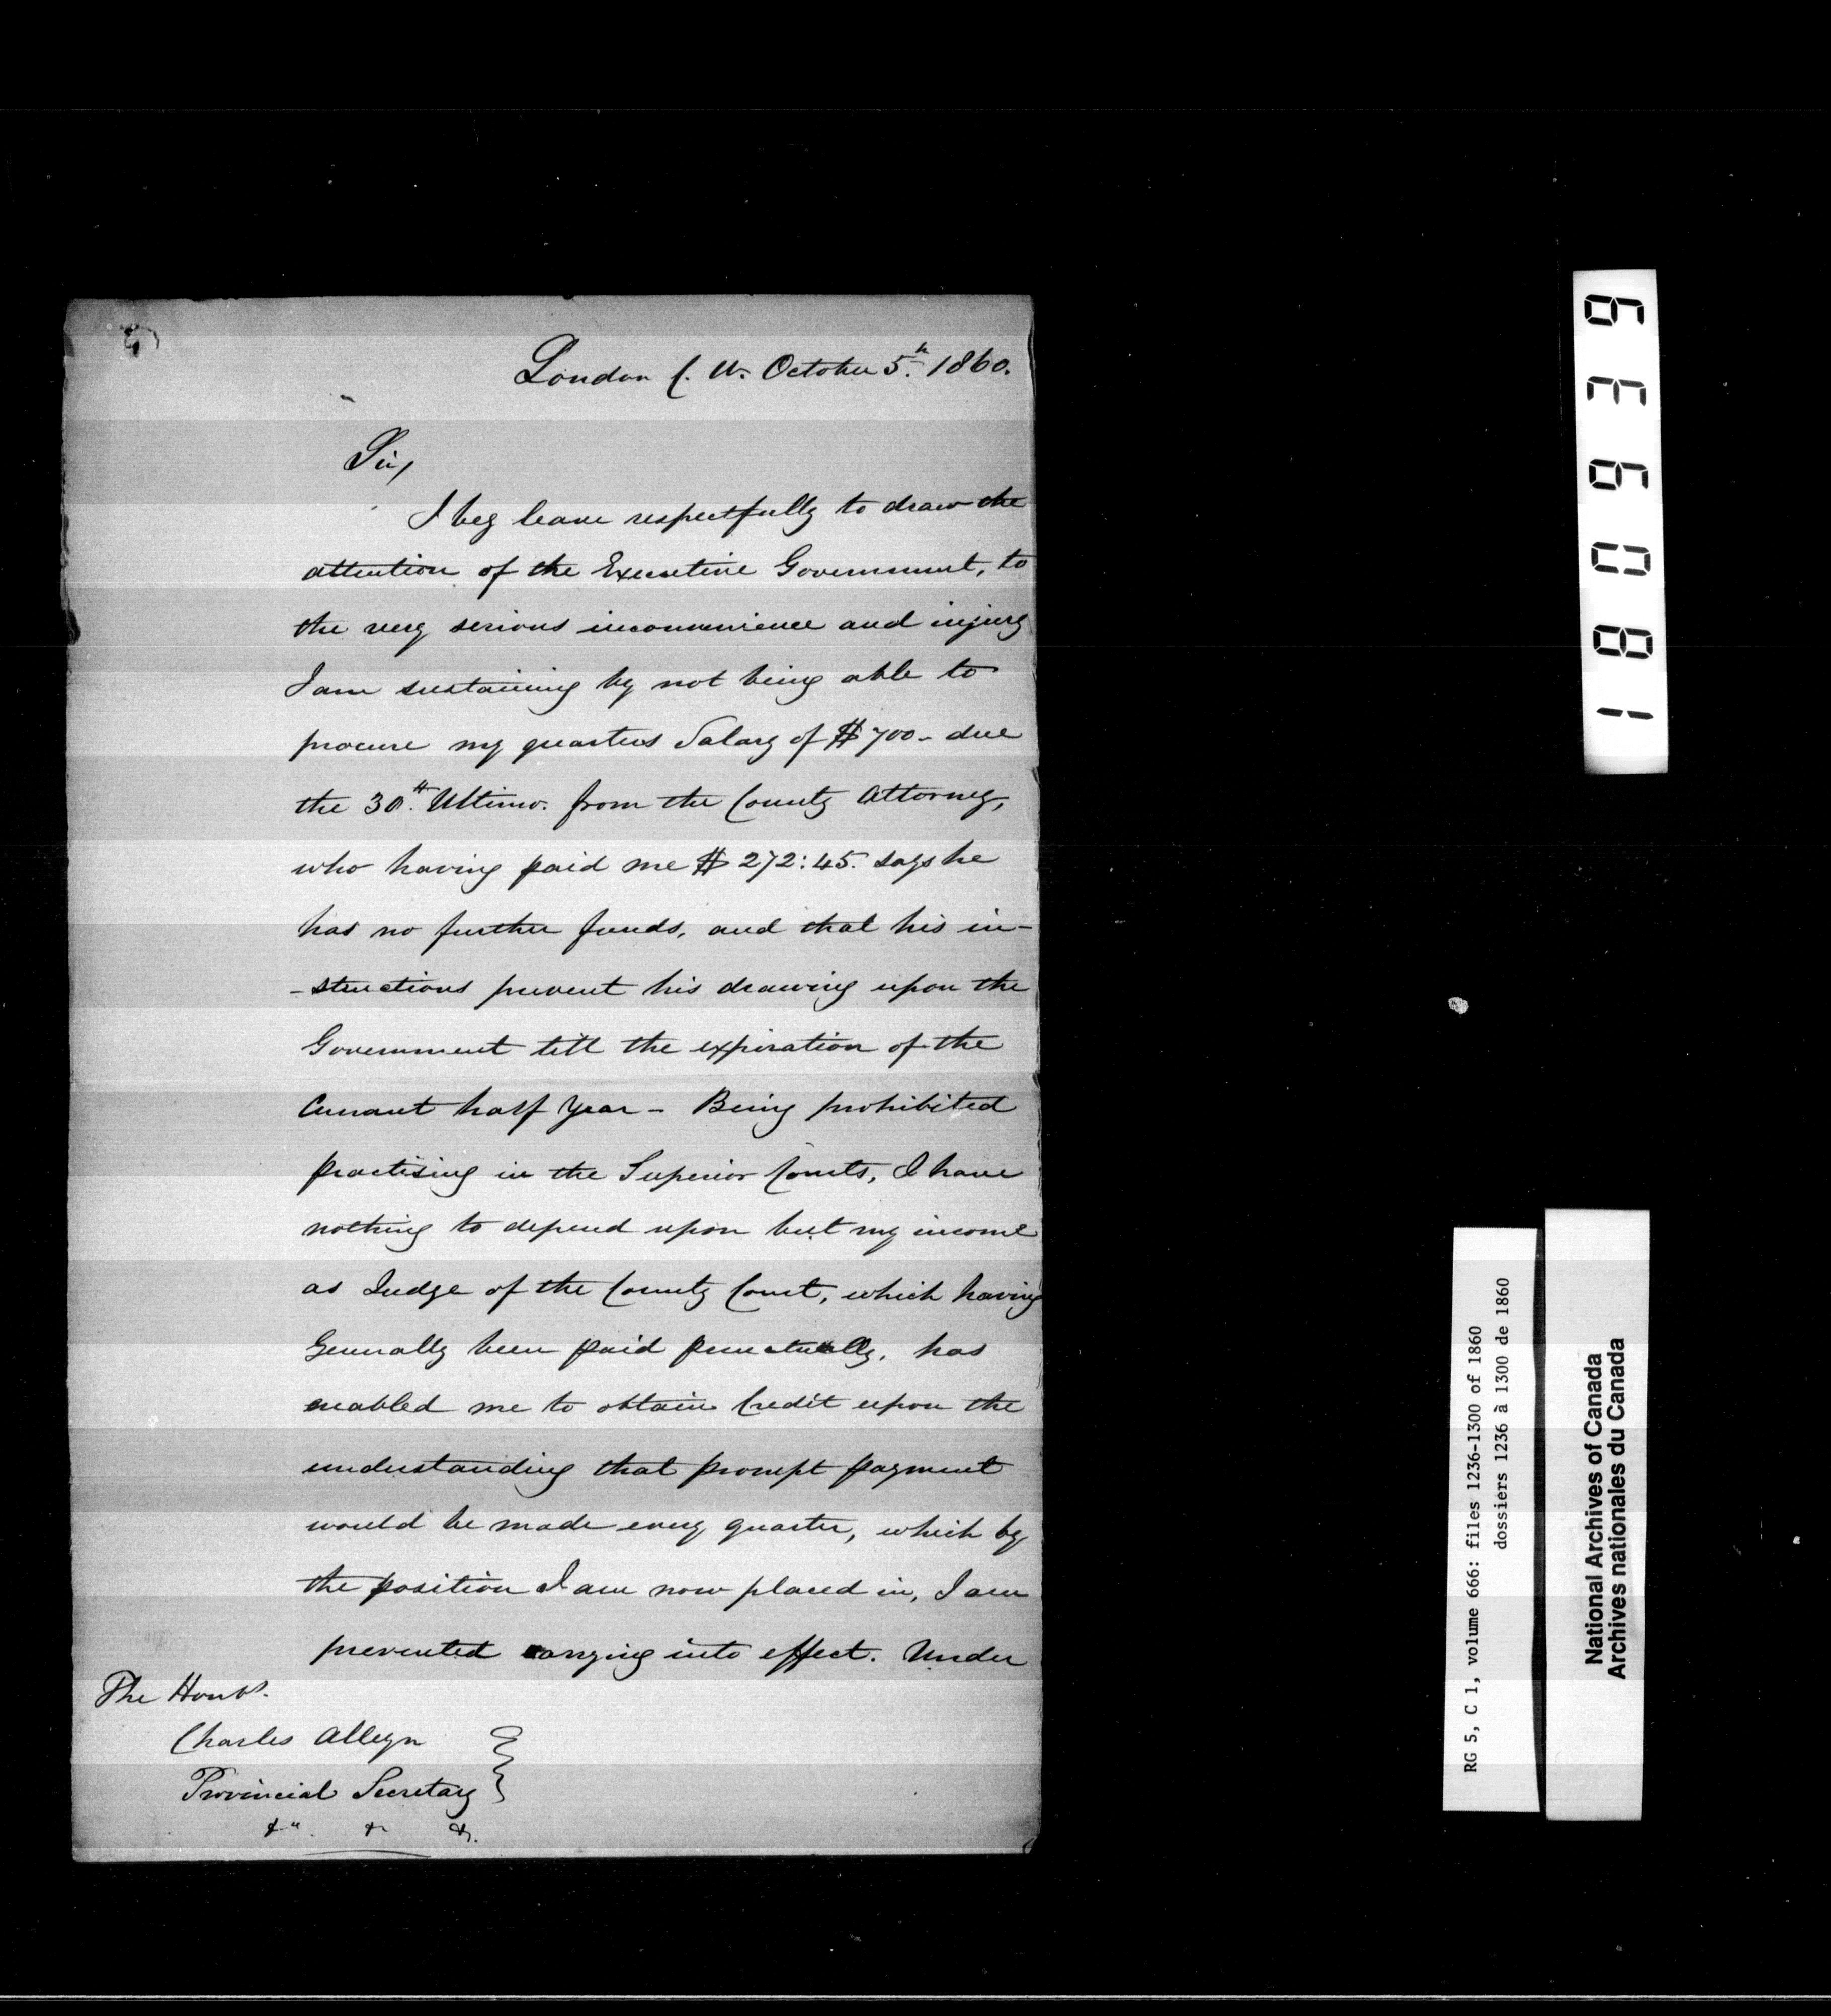 London C. W. October 5th. 1860.
Sir,
I beg leave respectfully to draw the
attention of the Executive Government, to
the very serious inconvenience and injury
I am sustaining by not being able to
procure my quarters Salary of $700- due
the 30th. Ultimo. from the County Attorney,
who having paid me $272:45. says he
has no further funds, and that his in-
-structions prevent his drawing upon the
Government till the expiration of the
Currant half Year - Being prohibited
practising in the Superior Courts, I have
nothing to depend upon but my income
as Judge of the County Court, which having
Generally been paid punctually, has
enabled me to obtain Credit upon the
understanding that prompt payment
would be made every quarter, which by
the position I am now placed in, I am
prevented carrying into effect. Under
The Honbl.
Charles Alleyn
Provincial Secretary
&c. &c &c.
180939
RG 5, C 1, volume 666: files 1236-1300 of 1860
dossiers 1236 à 1300 de 1860
National Archives of Canada
Archives nationales du Canada